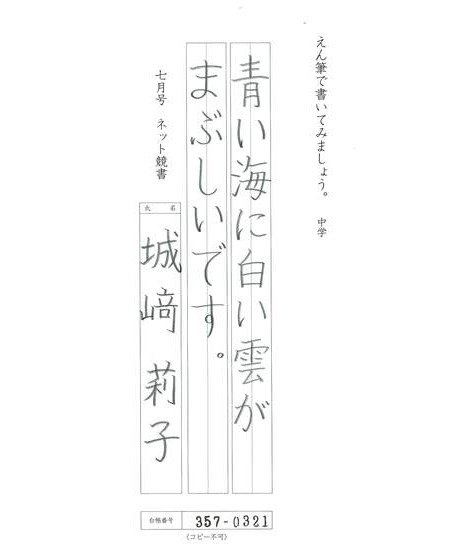 えん筆で書いてみましょう。 中学
青い海に白い雲が
まぶしいです。
七月号 ネット競書
氏 名
城﨑 莉子
台帳番号 357-0321
(コピー不可)